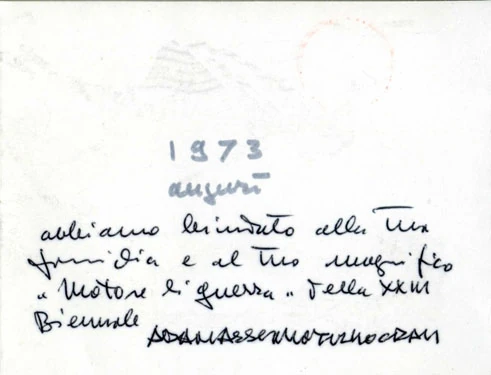 1973
auguri
abbiamo brindato alla tua
e al tuo magnifico
"Motore di guerra" della XXIII
Biennale